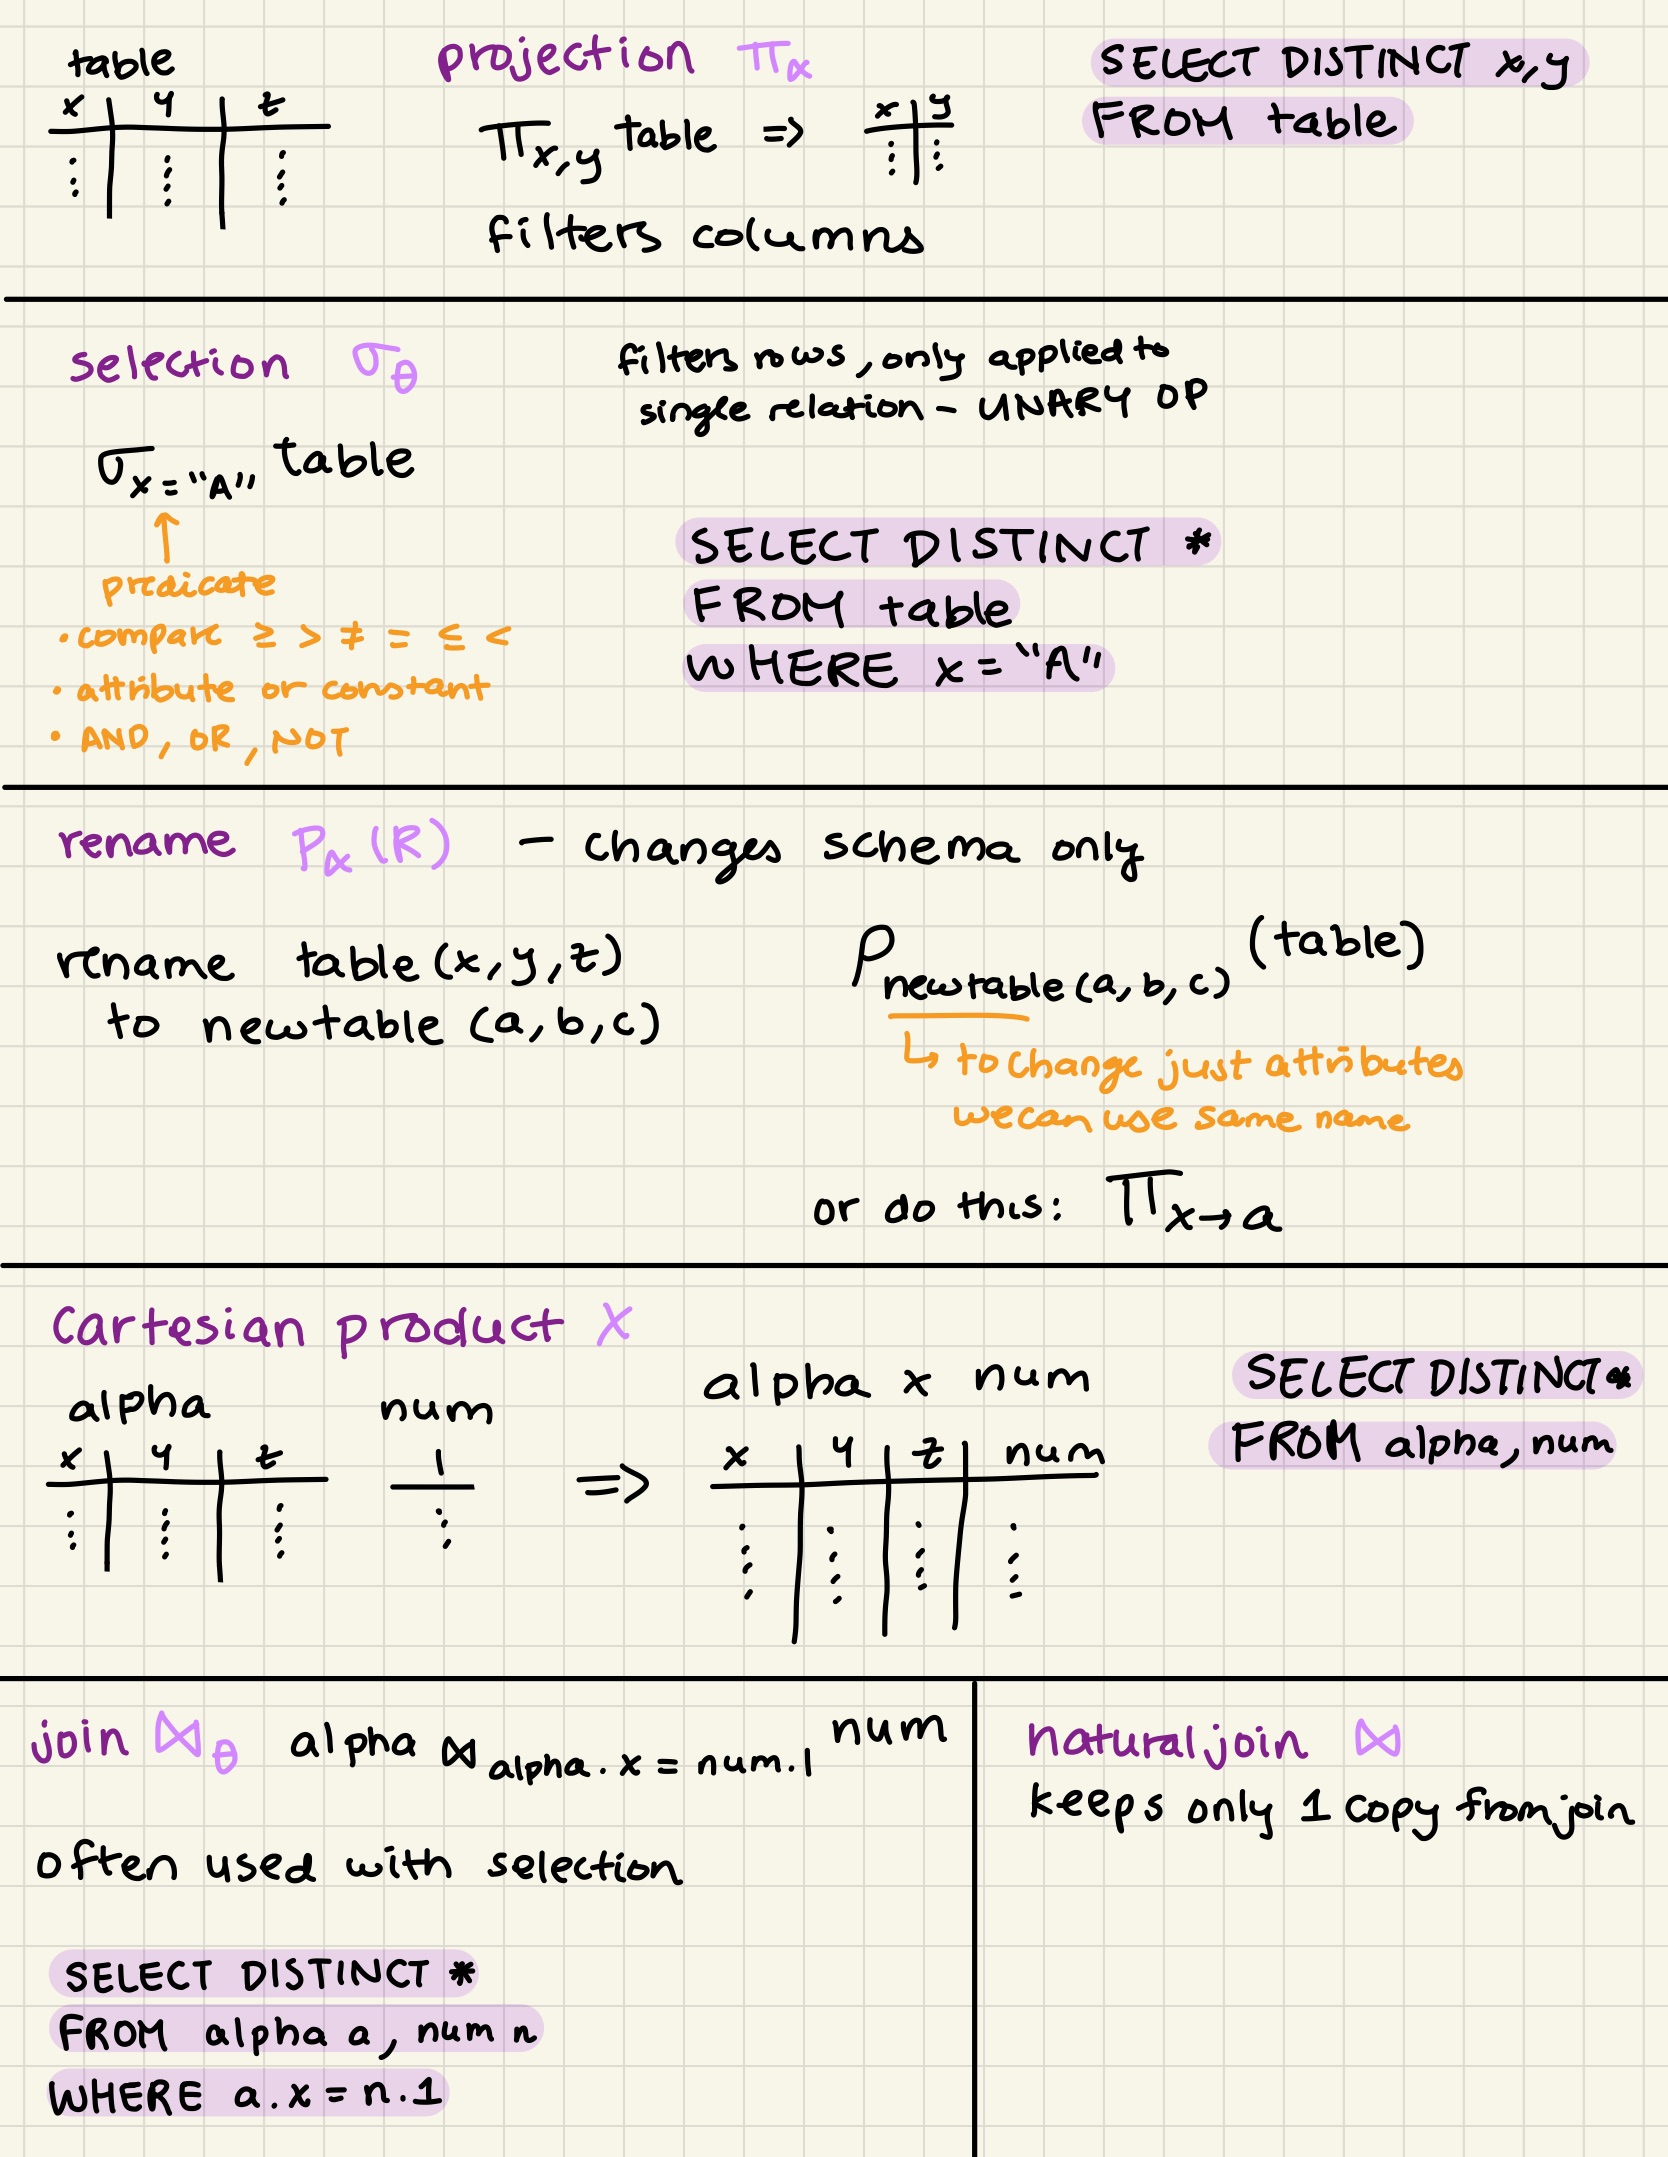 table
x y z
projection πα
π x,y table => x y
filters columns
SELECT DISTINCT x,y
FROM table
selection σθ
filters rows, only applied to
single relation - UNARY OP
σ x = "A" table
↑
predicate
• compare ≥ > ≠ = ≤ <
• attribute or constant
• AND, OR, NOT
SELECT DISTINCT *
FROM table
WHERE x = "A"
rename ρα (R) - changes schema only
rename table (x, y, z)
to newtable (a, b, c)
ρ newtable (a, b, c) (table)
↳ to change just attributes
we can use same name
or do this: π x → a
Cartesian product X
alpha num => alpha x num
x y z
1
x y z num
SELECT DISTINCT *
FROM alpha, num
join ⋈θ alpha ⋈ alpha.x = num.1 num
often used with selection
SELECT DISTINCT *
FROM alpha a, num n
WHERE a.x = n.1
natural join ⋈
keeps only 1 copy from join